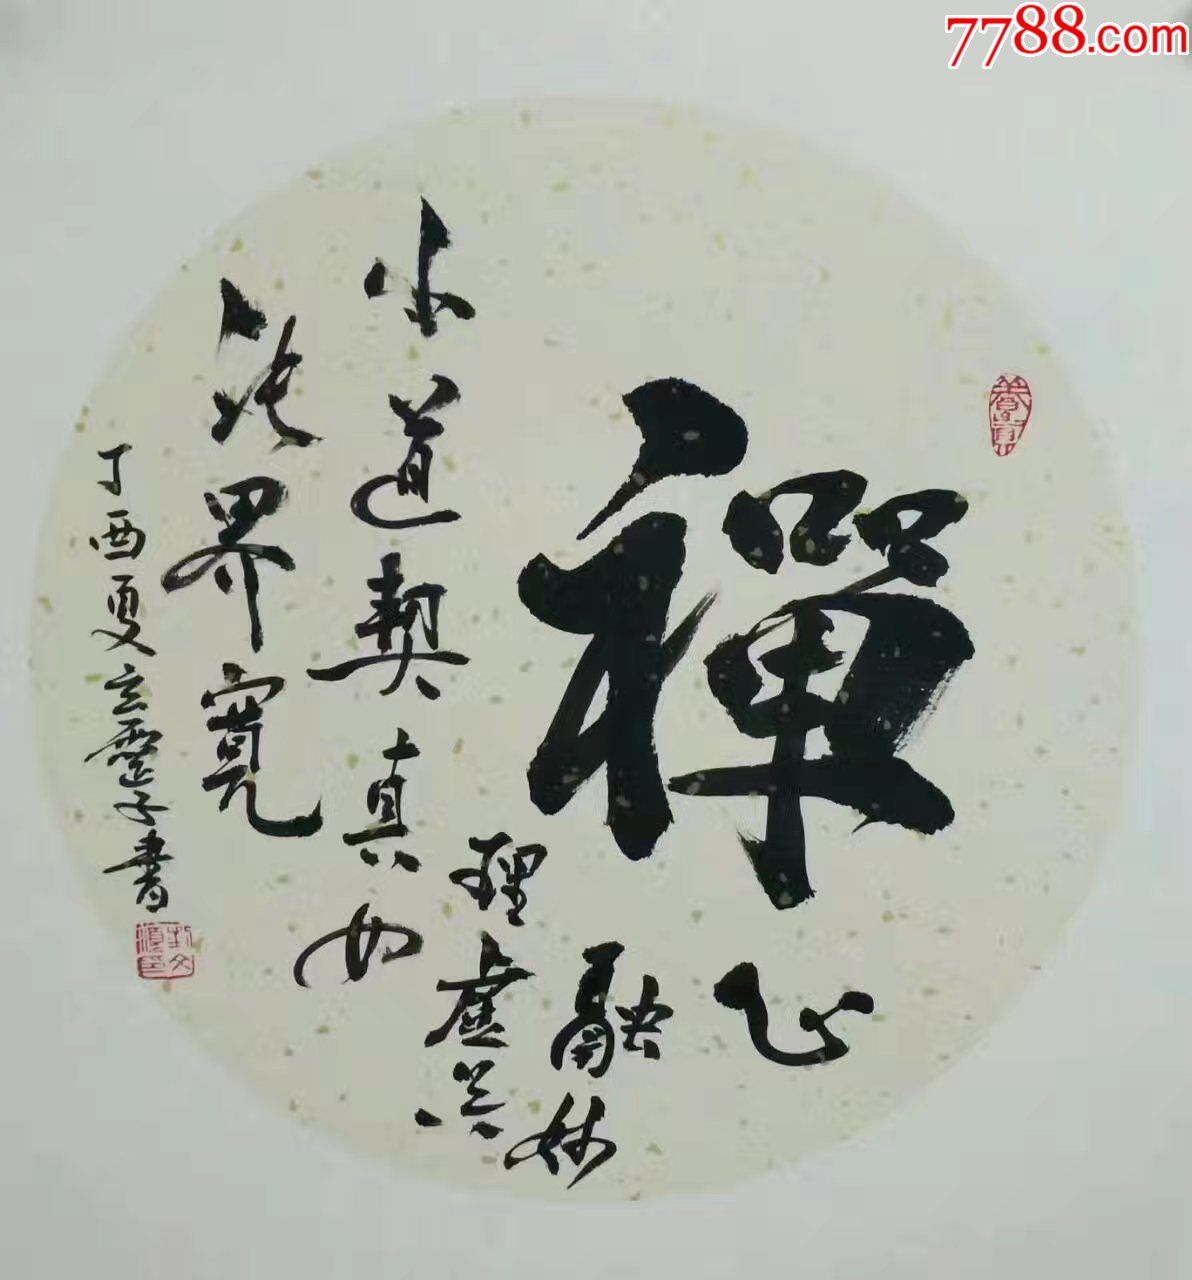 7788.com
禪
心
融妙
理虛空
小道契真如
法界寬
丁酉夏玄靈子書